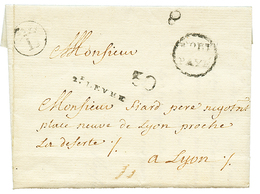 PORT
PAYÉ
Monsieur
2e LEVEE
Monsieur Siard pere negotiant
place neuve de Lyon proche
La deserte /.
a Lyon /.